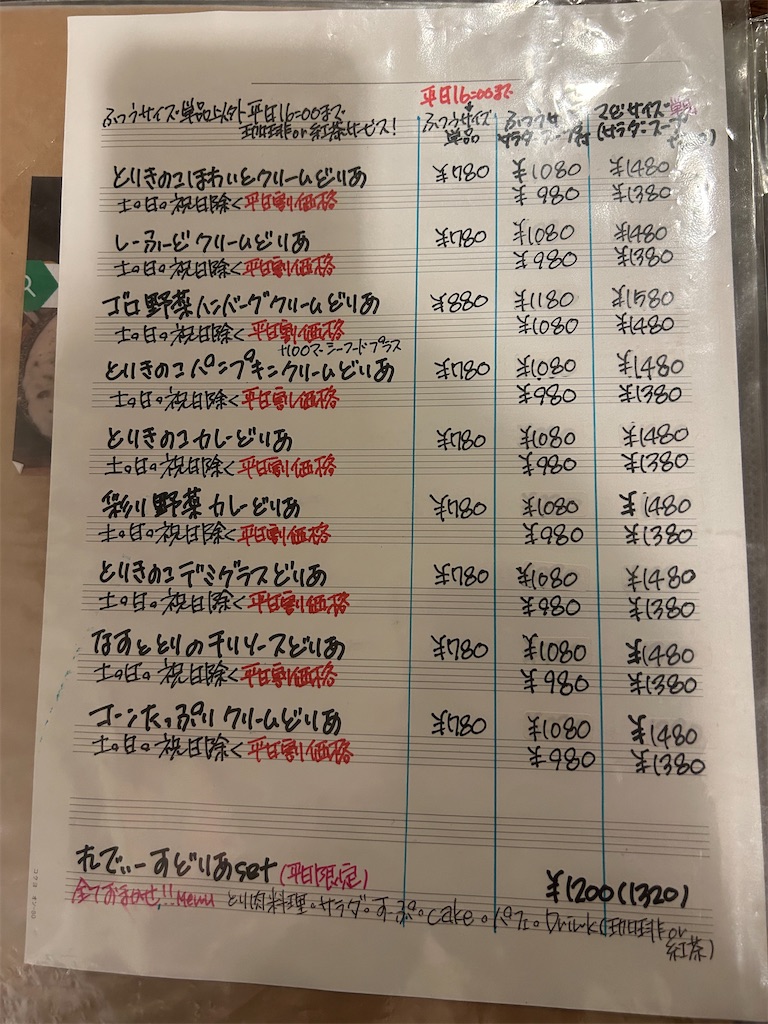 ふつうサイズ単品以外平日16:00まで
珈琲or紅茶サービス!
平日16:00まで
ふつうサイズ
単品
ふつうサイズ
サラダ・スープ付
マビサイズ単品
(サラダ・スープ
とりきのこほわいとクリームどりあ ¥780 ¥1080 ¥1480
土。日。祝日除く平日割価格 ¥980 ¥1380
しーふーどクリームどりあ ¥780 ¥1080 ¥1480
土。日。祝日除く平日割価格 ¥980 ¥1380
ゴロ野菜ハンバーグクリームどりあ ¥880 ¥1180 ¥1580
土。日。祝日除く平日割価格 ¥1080 ¥1480
+100でシーフードプラス
とりきのこパンプキンクリームどりあ ¥780 ¥1080 ¥1480
土。日。祝日除く平日割価格 ¥980 ¥1380
とりきのこカレーどりあ ¥780 ¥1080 ¥1480
土。日。祝日除く平日割価格 ¥980 ¥1380
彩り野菜カレーどりあ ¥780 ¥1080 ¥1480
土。日。祝日除く平日割価格 ¥980 ¥1380
とりきのこデミグラスどりあ ¥780 ¥1080 ¥1480
土。日。祝日除く平日割価格 ¥980 ¥1380
なすととりのチリソースどりあ ¥780 ¥1080 ¥1480
土。日。祝日除く平日割価格 ¥980 ¥1380
コーンたっぷりクリームどりあ ¥780 ¥1080 ¥1480
土。日。祝日除く平日割価格 ¥980 ¥1380
れでぃーすどりあset(平日限定) ¥1200(1320)
全ておまかせ!!Menu とり肉料理。サラダ。すーぷ。cake。パフェ。Drink(珈琲or
紅茶)